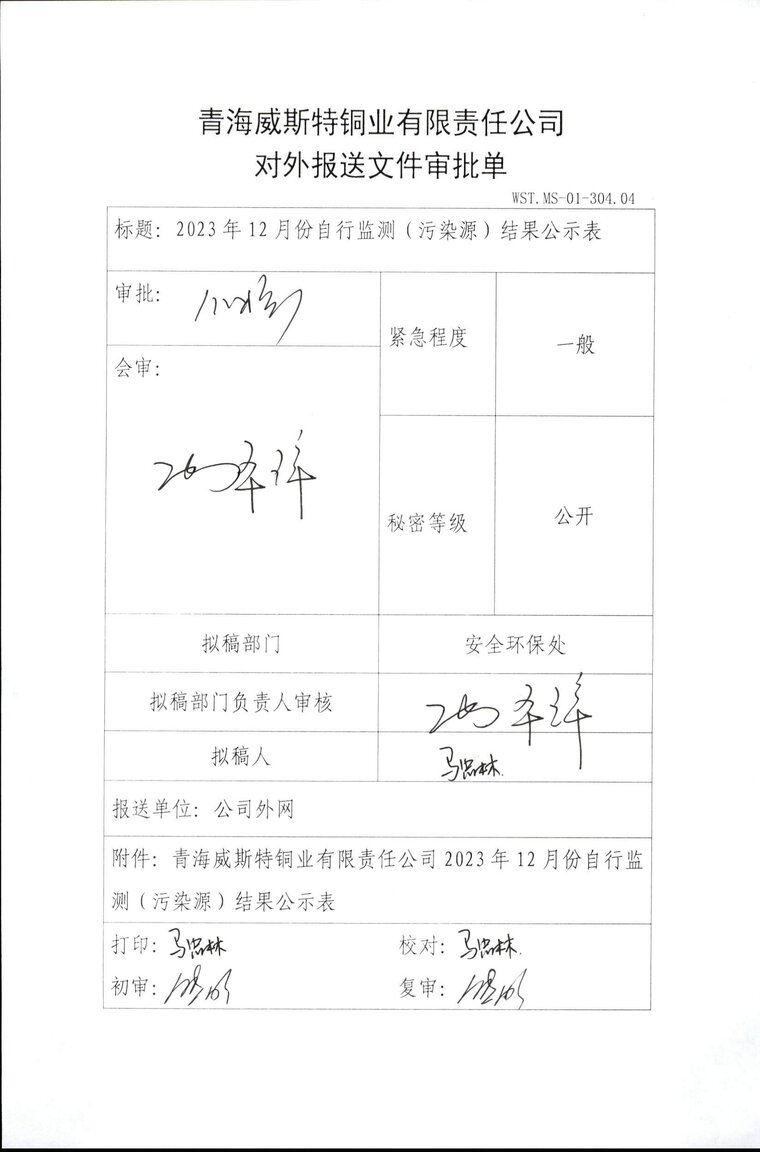 青海威斯特铜业有限责任公司
对外报送文件审批单
WST.MS-01-304.04
标题：2023年12月份自行监测（污染源）结果公示表
审批：
紧急程度
一般
会审：
秘密等级
公开
拟稿部门
安全环保处
拟稿部门负责人审核
拟稿人
马忠林
报送单位：公司外网
附件：青海威斯特铜业有限责任公司2023年12月份自行监
测（污染源）结果公示表
打印：马忠林
校对：马忠林
初审：
复审：